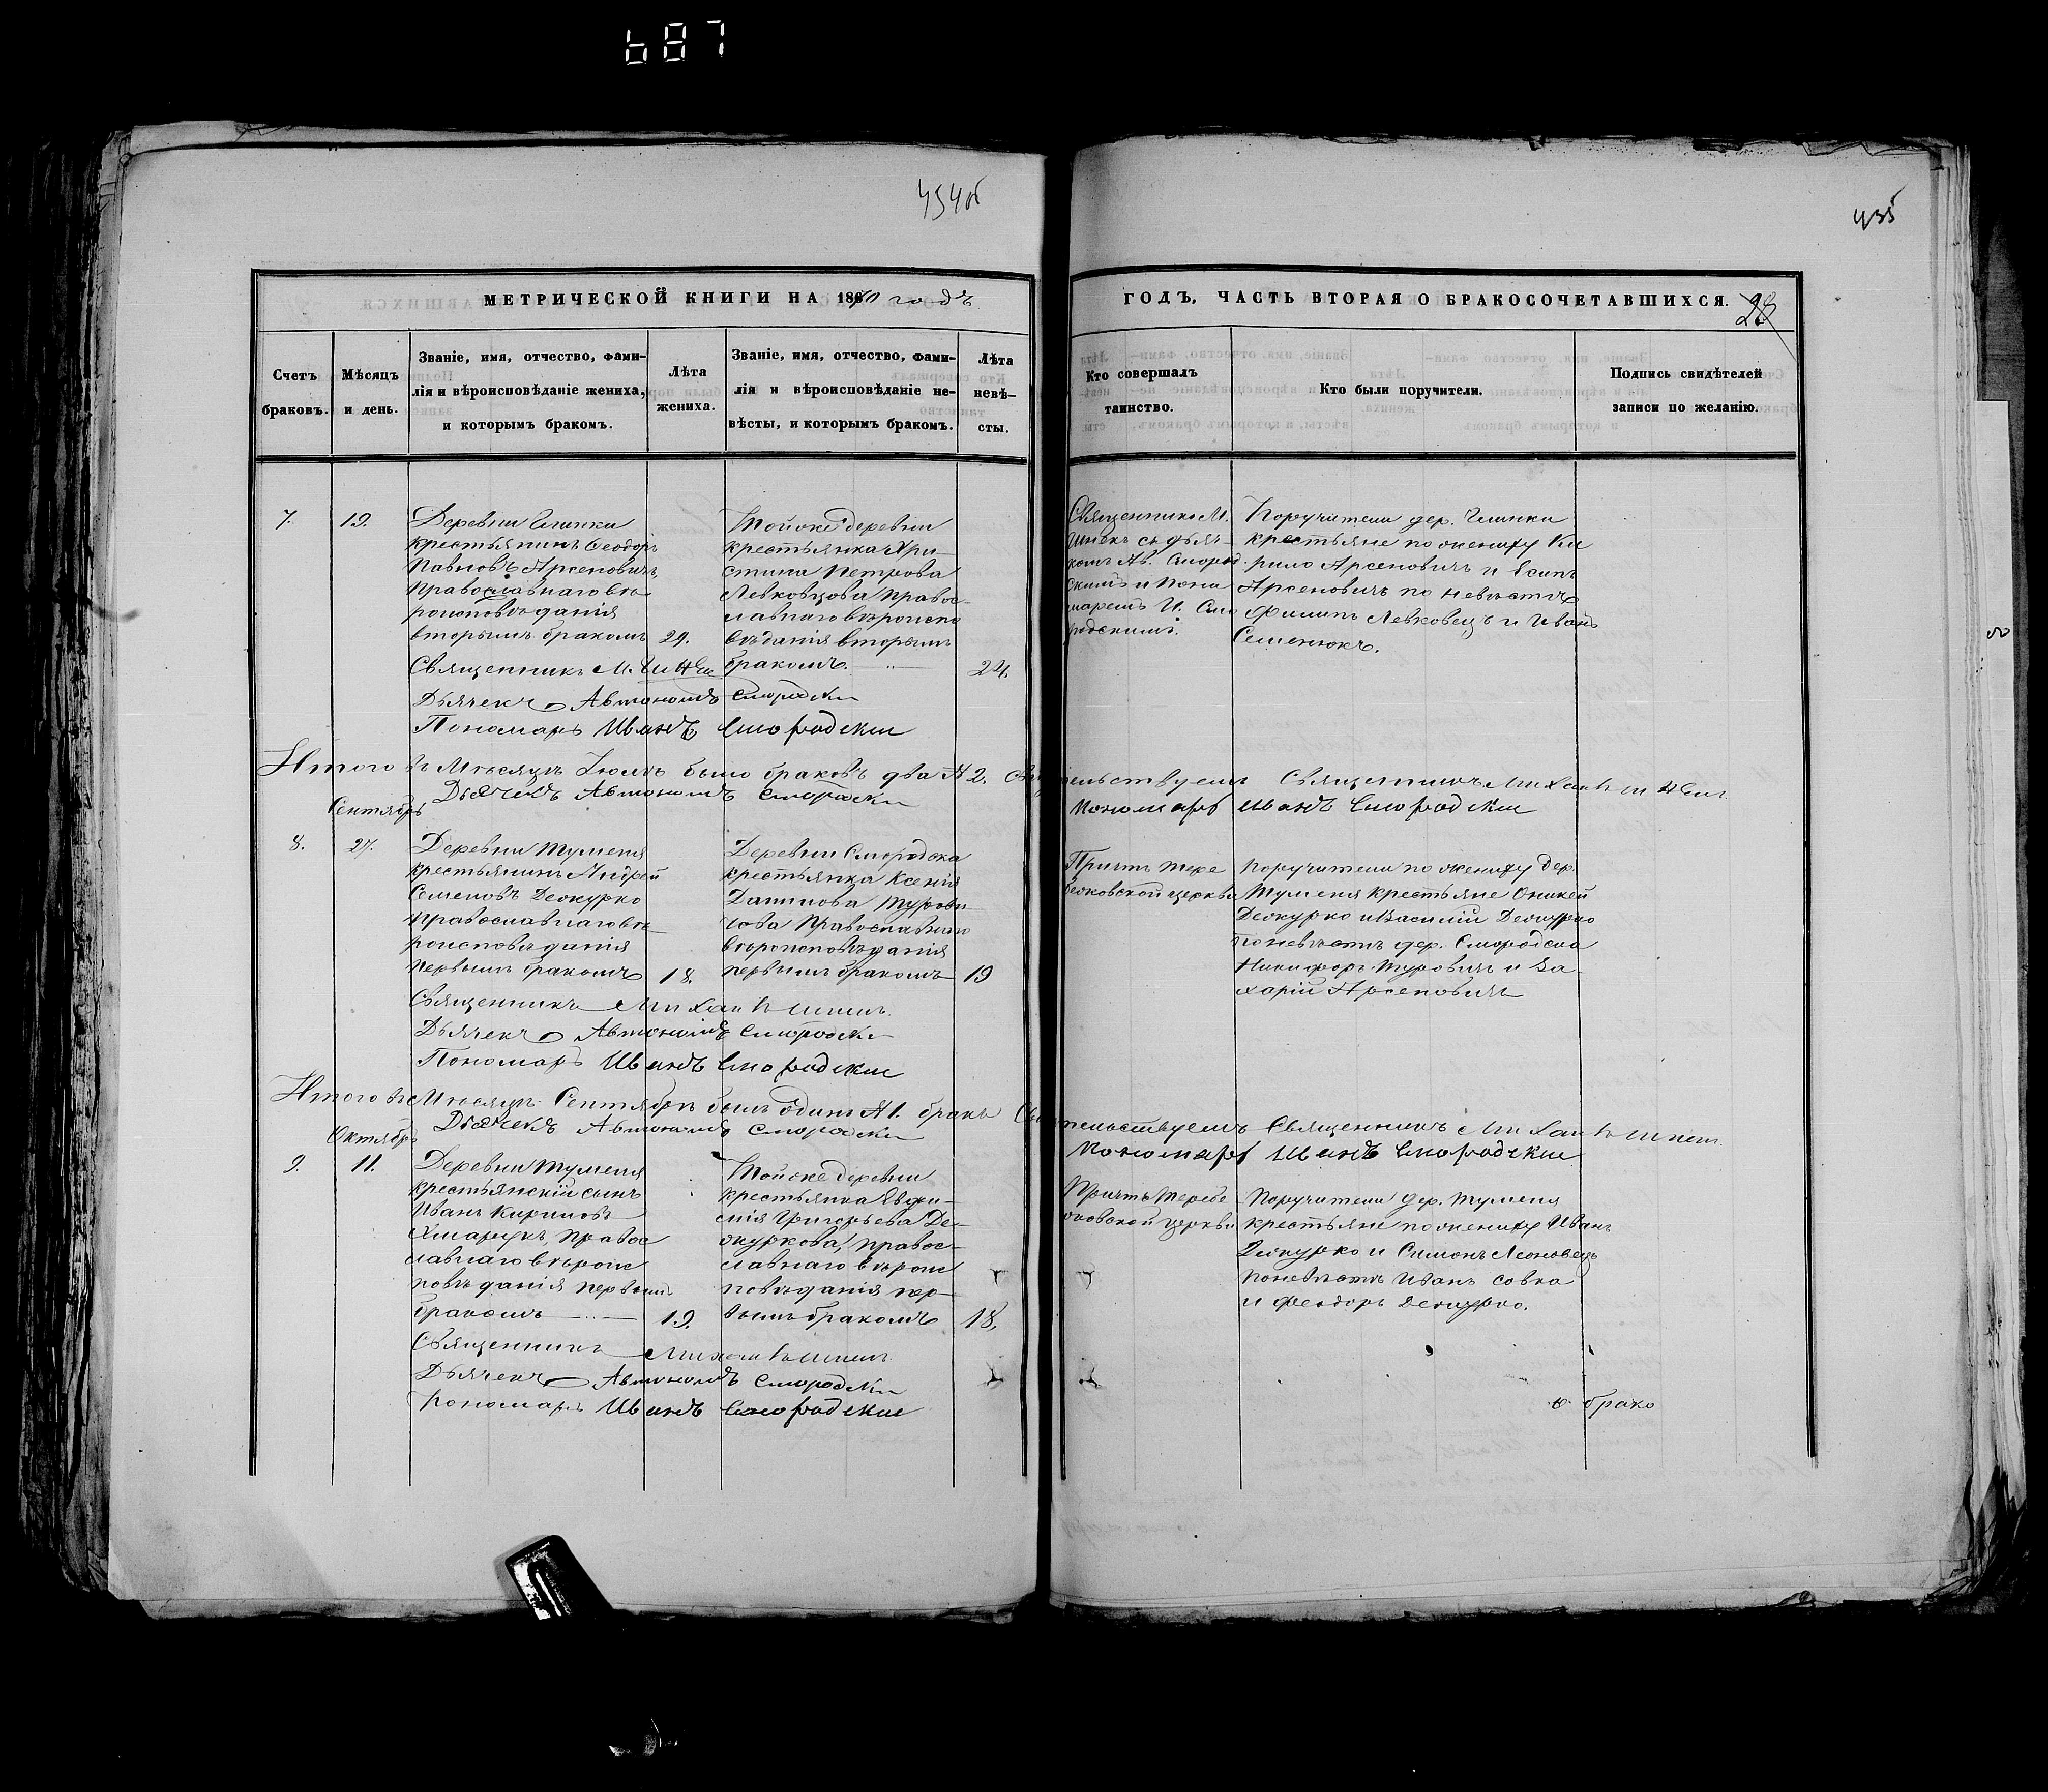 687
454об
435
МЕТРИЧЕСКОЙ КНИГИ НА 1870 годъ
ГОДЪ, ЧАСТЬ ВТОРАЯ О БРАКОСОЧЕТАВШИХСЯ.
28
Счетъ браковъ.
Мѣсяцъ и день.
Званіе, имя, отчество, фами-
лія и вѣроисповѣданіе жениха,
и которымъ бракомъ.
Лѣта жениха.
Званіе, имя, отчество, фами-
лія и вѣроисповѣданіе не-
вѣсты, и которымъ бракомъ.
Лѣта невѣ-
сты.
Кто совершалъ
таинство.
Кто были поручители.
Подпись свидѣтелей
записи по желанію.
7.
19.
Деревни Глинки
крестьянинъ Феодоръ
Павловъ Арсеновичъ,
Православнаго вѣ
роисповѣданія
вторымъ бракомъ
29.
Тойже деревни
крестьянка Хри-
стина Петрова
Левковцова Правос-
лавнаго вѣроиспо
вѣданія вторымъ
бракомъ.
24.
Священникъ М.
комъ Ав. Смород
скимъ и Поно
маремъ И. Смо
родскимъ.
Поручители дер. Глинки
крестьяне по жениху Ки
рило Арсеновичъ и Есипъ
Арсеновичъ по невѣстѣ
Филипъ Левковецъ и Иванъ
Семенюкъ.
Священникъ М.
Дьячекъ Автономъ Смородски
Пономарь Иванъ Смородскии
Итого въ Мѣсяцѣ Іюлѣ было браковъ два № 2. Свидѣтельствуемъ Священникъ Михаилъ
Дьячекъ Автономъ Смородски
Пономарь Иванъ Смородскии
Сентябрь
8.
27.
Деревни Туменя
крестьянинъ Андрей
Семеновъ Деокурко
Православнаго вѣ-
роисповѣданія
первымъ бракомъ
18.
Деревни Смородска
крестьянка Ксенія
Данилова Турови
чова Православнаго
вѣроисповѣданія
первымъ бракомъ
19
Причтъ Тере
бежовской церкви
Поручители по жениху дер.
Туменя крестьяне
Деокурко и Василій Деокурко
по невѣстѣ дер. Смородска
Никифоръ Туровичъ и За-
харій Арсеновичъ
Священникъ Михаилъ
Дьячекъ Автономъ Смородски
Пономарь Иванъ Смородскии
Итого въ Мѣсяцѣ Сентябрѣ былъ одинъ № 1. бракъ Свидѣтельствуемъ Священникъ Михаилъ
Дьячекъ Автономъ Смородски
Пономарь Иванъ Смородскии
Октябрь
9.
11.
Деревни Туменя
крестьянскій сынъ
Иванъ Кириловъ
Хмарукъ, Правос
лавнаго вѣроис
повѣданія первымъ
бракомъ
19.
Тойже деревни
крестьянка Евфи-
мія Григорьева Де-
окуркова, правос-
лавнаго вѣроис
повѣданія пер-
вымъ бракомъ
18.
Причтъ Теребе
жовской церкви
Поручители дер. Туменя
крестьяне по жениху Иванъ
Деокурко и Симонъ
по невѣстѣ Иванъ Совка
и Феодоръ Деокурко.
Священникъ Михаилъ
Дьячекъ Автономъ Смородски
Пономарь Иванъ Смородскии
о брако